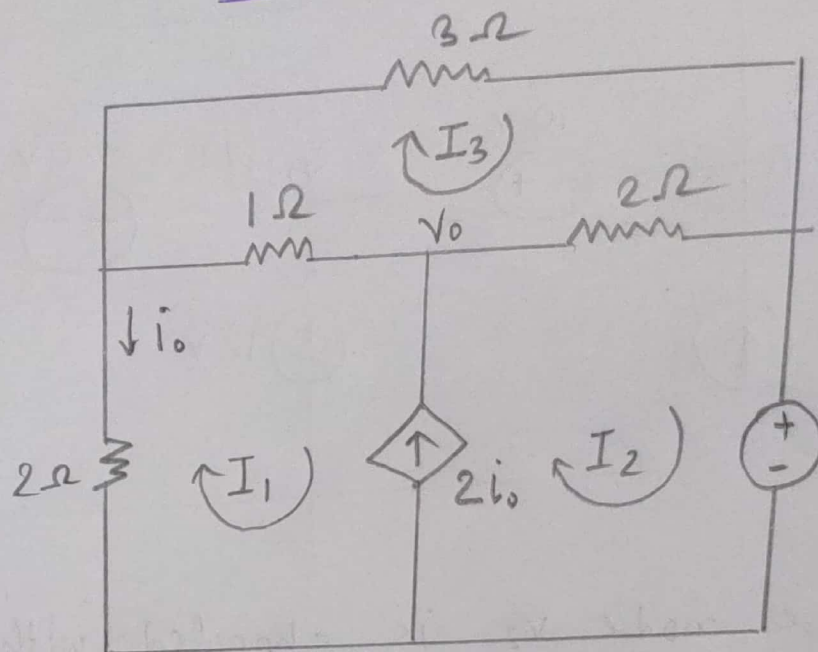 3Ω
I3
1Ω
V0
2Ω
i0
2Ω
I1
2i0
I2
+
-